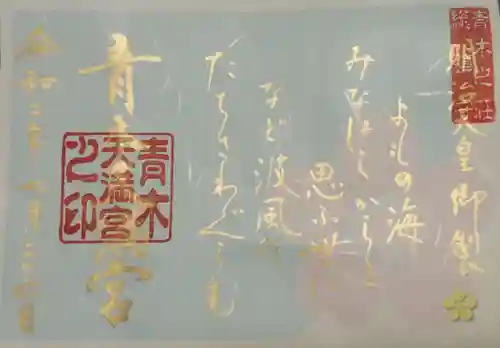 青木之荘
総鎮守
明治天皇御製
よもの海
みなはらからと
思ふ世に
など波風の
たちさわぐらむ
青木天満宮
青木
天満宮
之印
令和二年七月